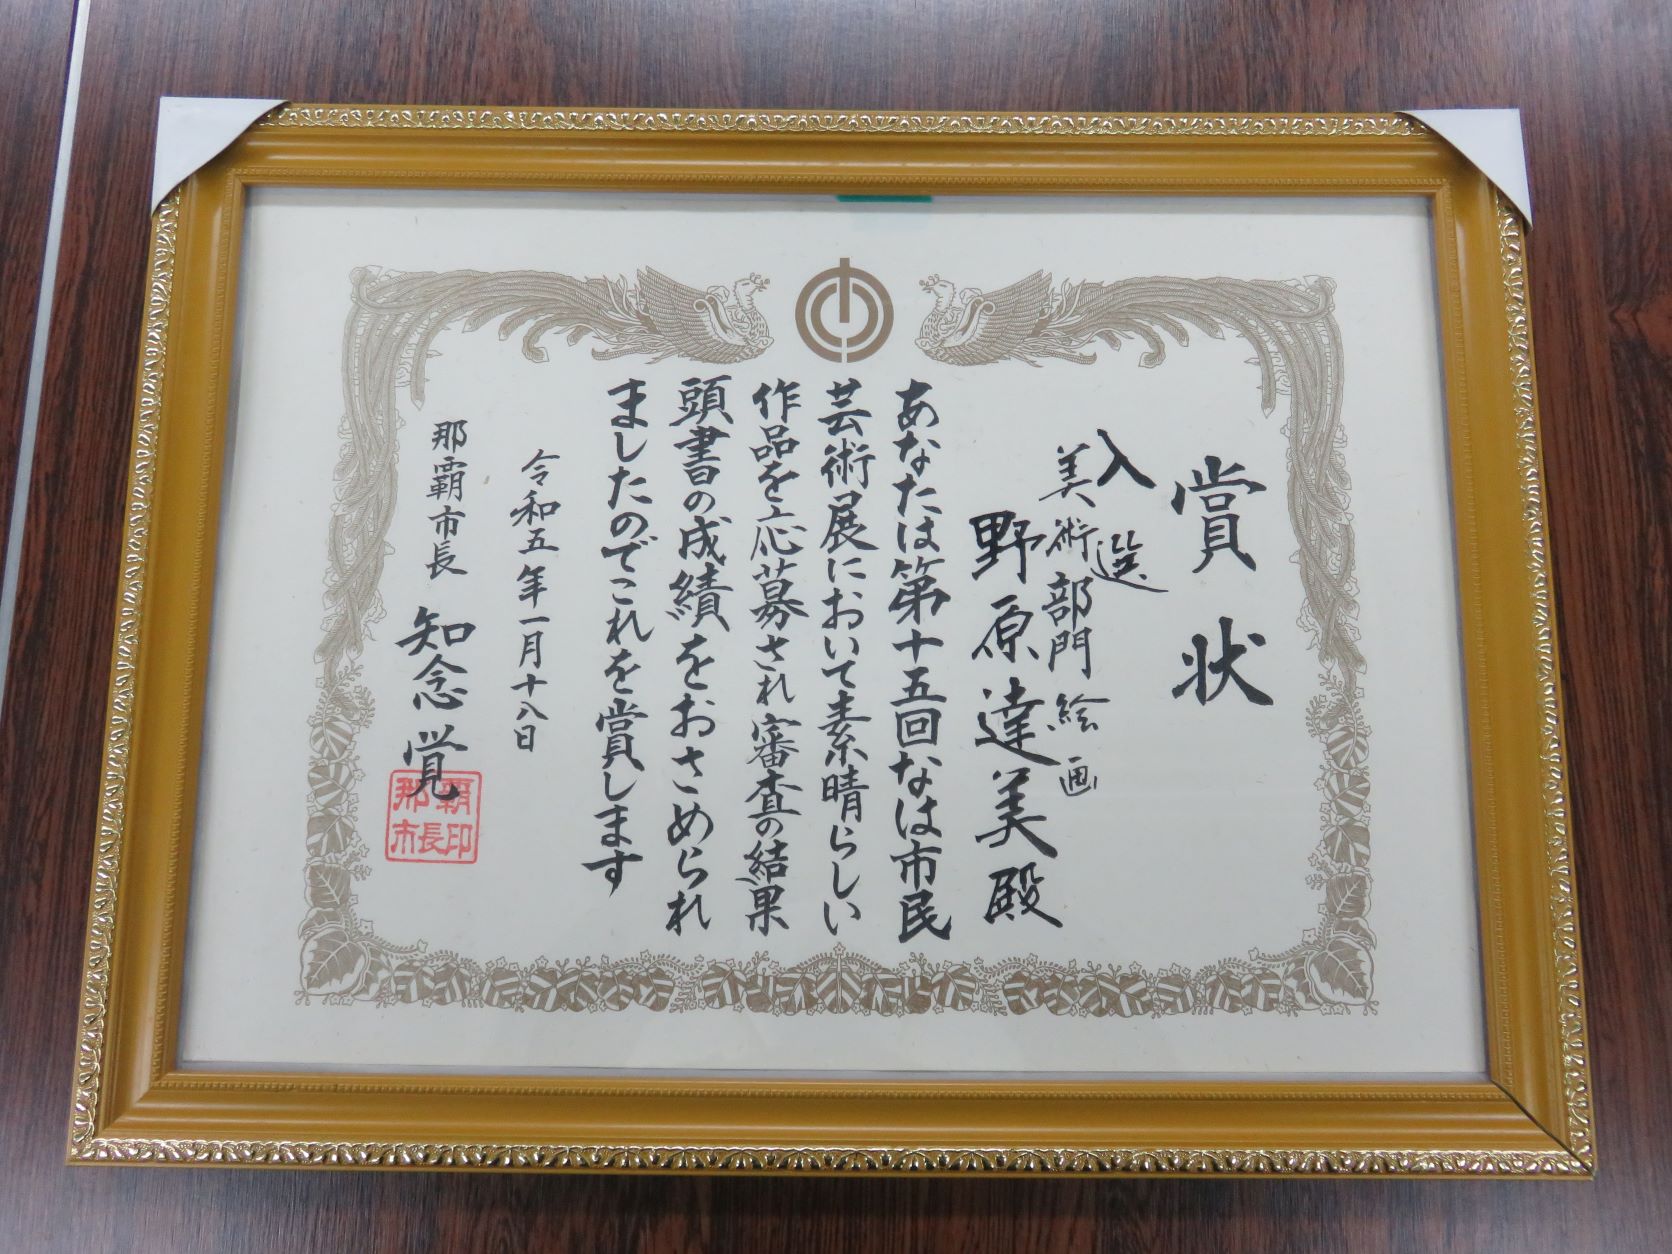 賞状
入選
美術部門絵画
野原達美殿
あなたは第十五回なは市民
芸術展において素晴らしい
作品を応募され審査の結果
頭書の成績をおさめられ
ましたのでこれを賞します
令和五年一月十八日
那覇市長 知念覚
那覇市長印